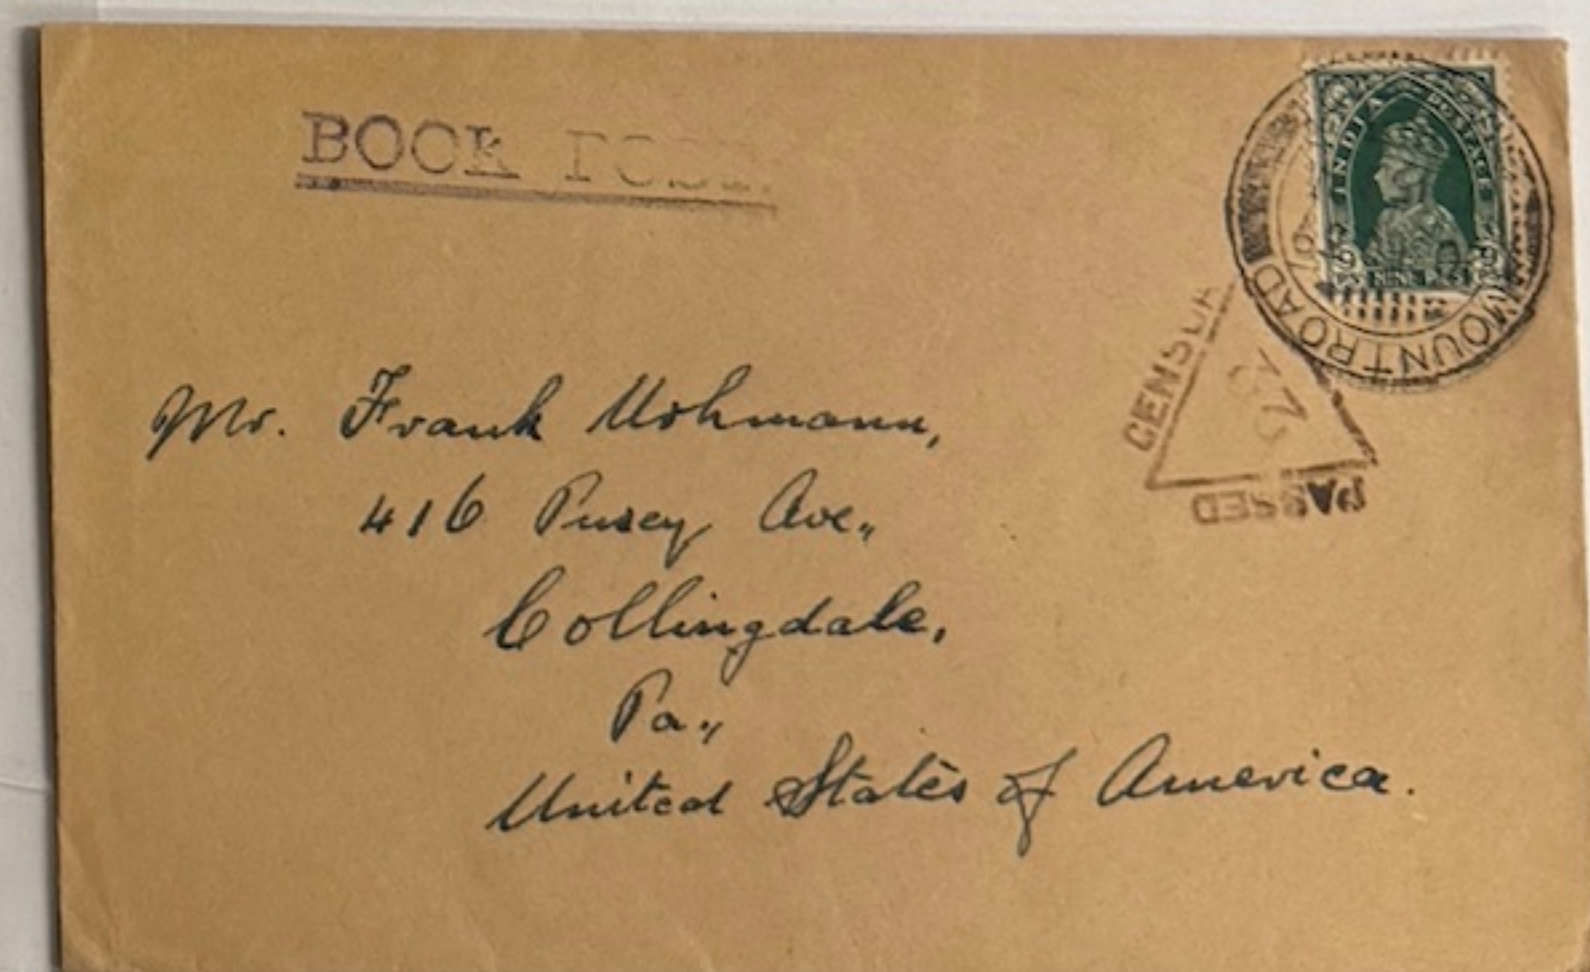 BOOK POST.
INDIA POSTAGE
9 Ps
NINE PIES
MOUNT ROAD
CENSOR
PASSED
Mr. Frank Uohmann,
416 Pusey Ave.,
Collingdale,
Pa.,
United States of America.